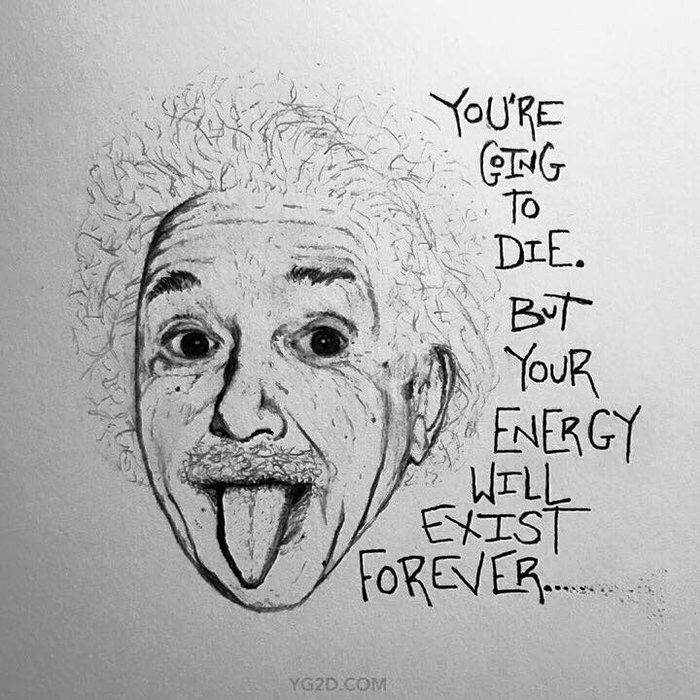 YOU'RE
GOING
TO
DIE.
BUT
YOUR
ENERGY
WILL
EXIST
FOREVER......
YG2D.COM